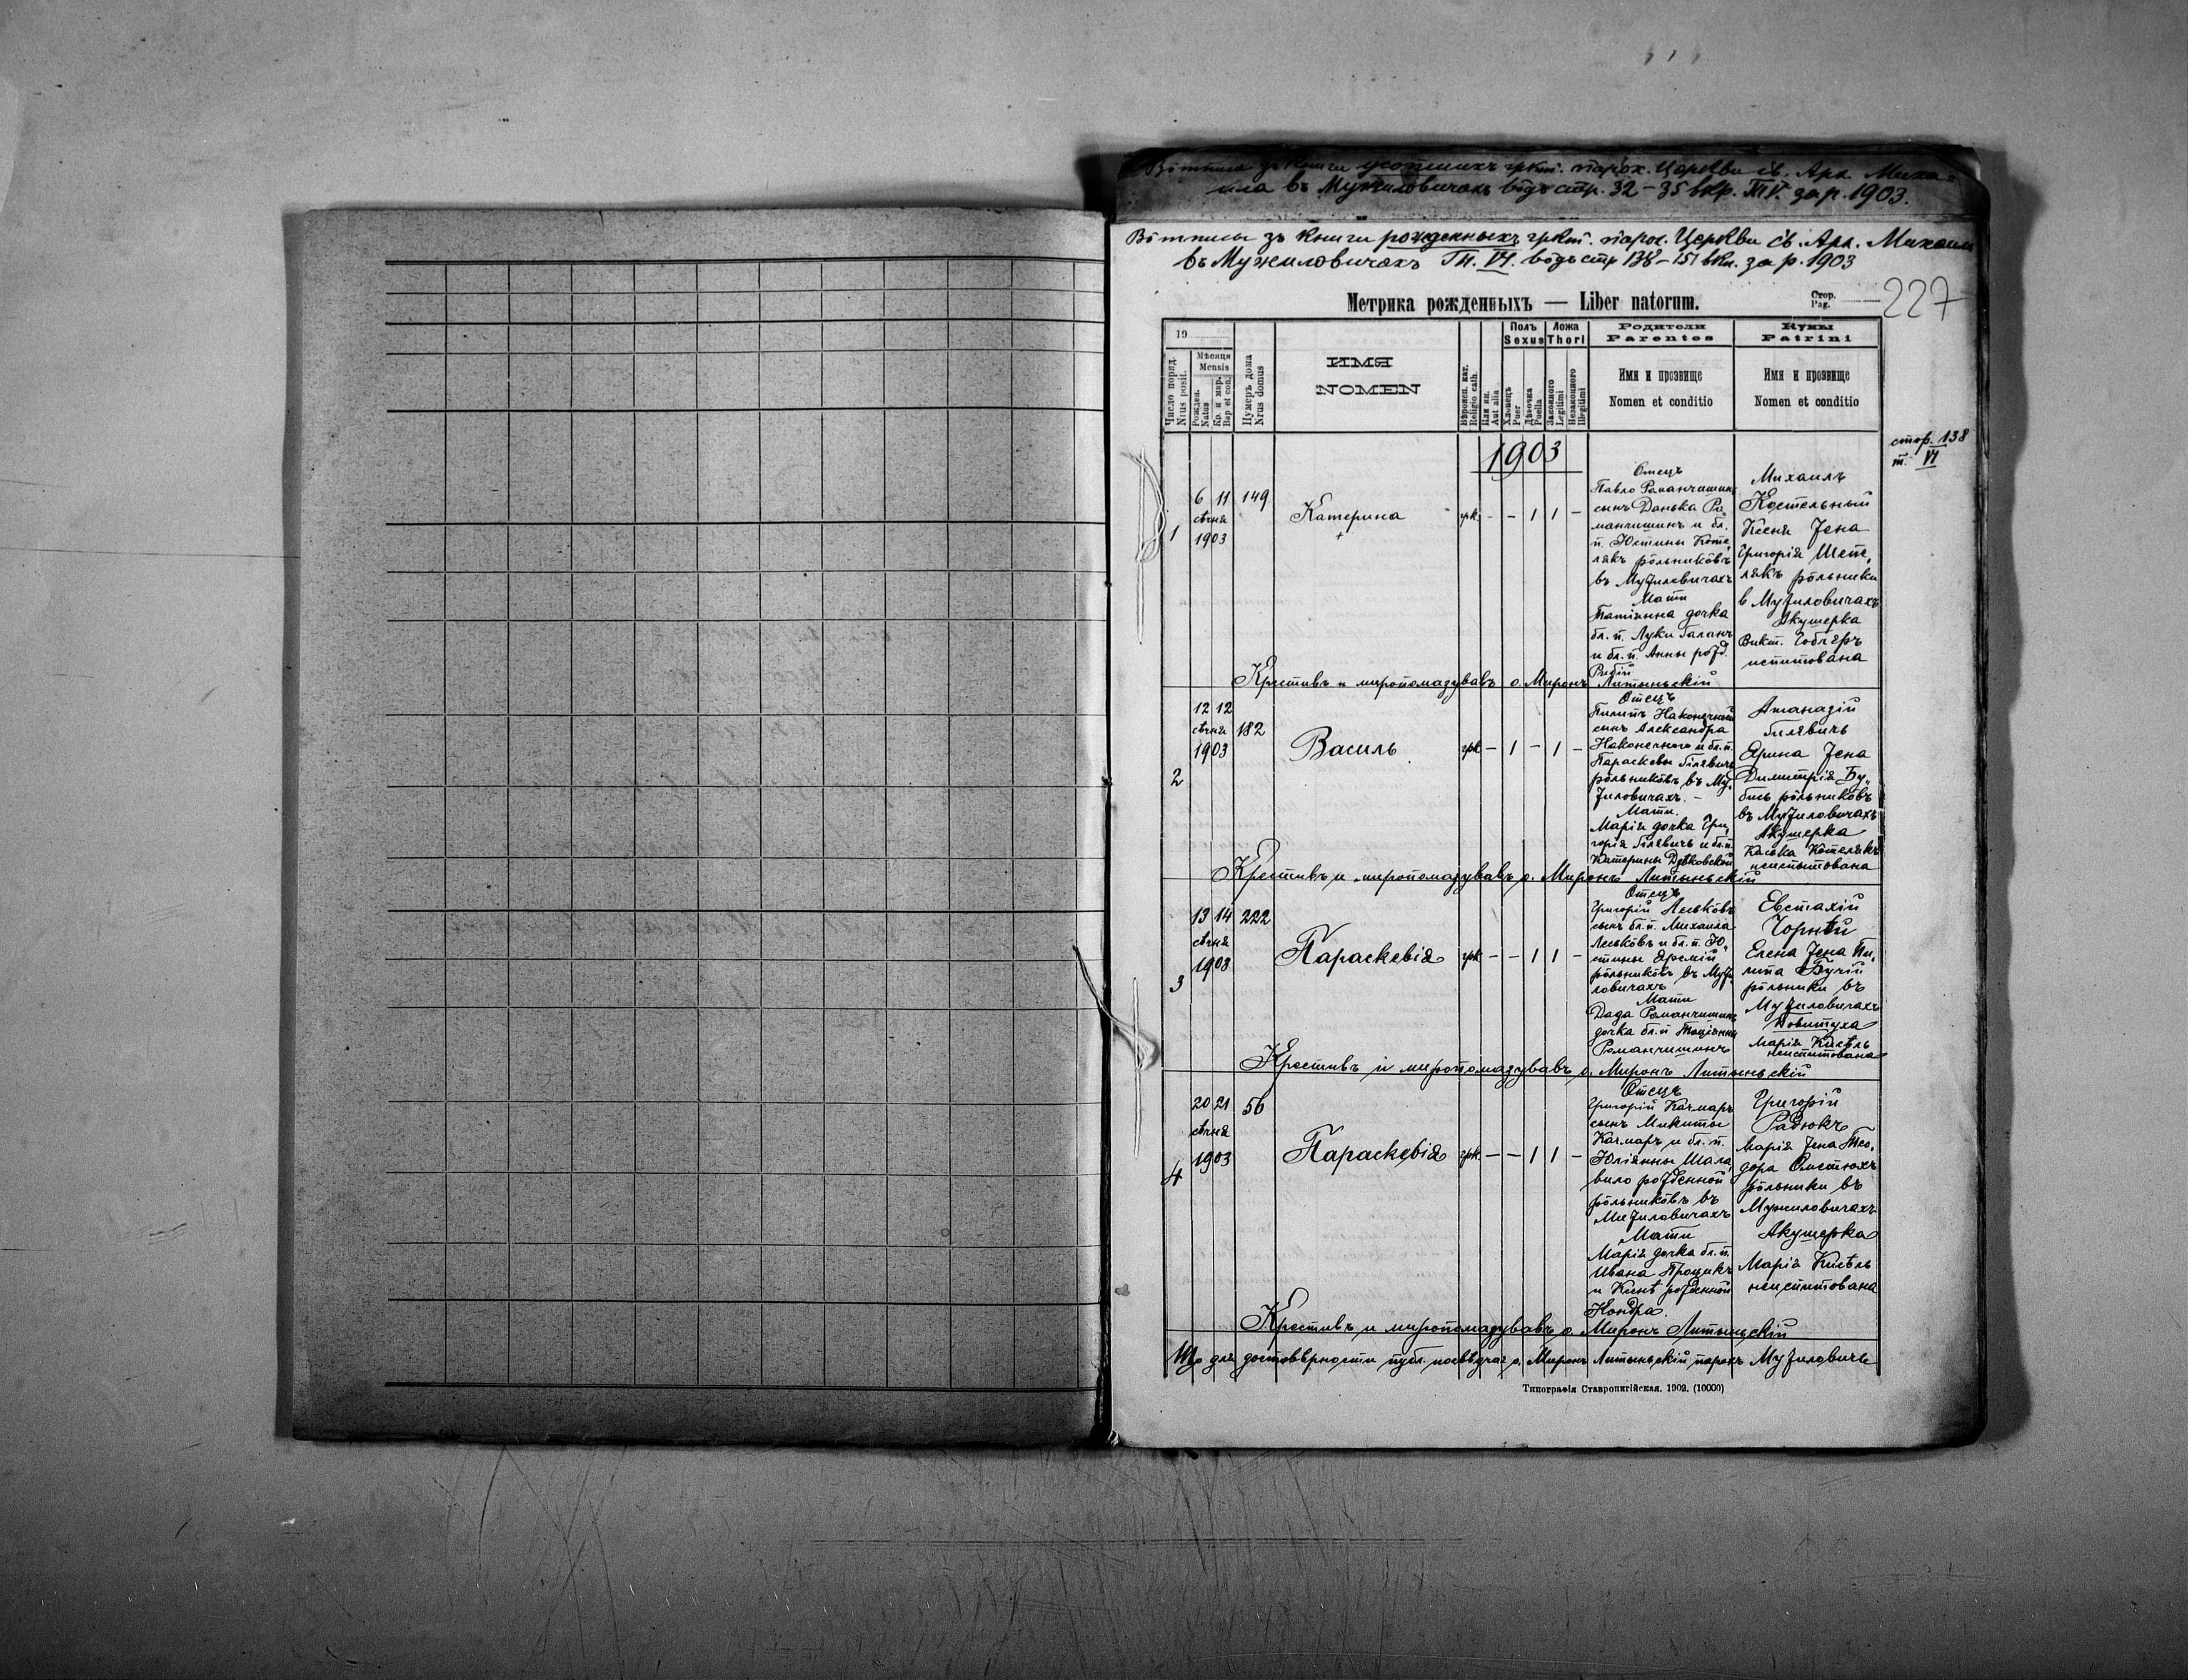 Вôтписы зъ книги усопшихъ гркт. парох. Церкви св. Арх. Миха=
ила въ Мужиловичахъ вôдъ стр. 32-35 вкр. т. IV. за р. 1903.
Вôтписы зъ книги рожденныхъ гркт. парох. Церкви св. Арх. Михаила
въ Мужиловичахъ Тп. VI. вôдъ стр 138-151 вкл. за р. 1903
227
Метрика рожденныхъ — Liber natorum.
Стор.
Pag.
19
Число поряд.
Nrus posit.
Мѣсяця
Mensis
Рожден.
Natus
Кр. и мир.
Bap et con.
Нумеръ дома
Nrus domus
ИМЯ
NOMEN
Вѣроисп. кат.
Religio cath.
Или ин.
Aut alia
Полъ
Sexus
Хлопецъ
Puer
Дѣвочка
Puella
Ложа
Thori
Законного
Legitimi
Незаконного
Illegitimi
Родители
Parentes
Имя и прозвище
Nomen et conditio
Кумы
Patrini
Имя и прозвище
Nomen et conditio
стор. 138
т. VI
1903
1
6 11
сѣчня
1903
149
Катерина
грк - - 1 1 -
Отецъ
Павло Романчишинъ
сынъ Данька Ро
манчишинъ и бл.
п. Юстины Коте,
лякъ рôльникôвъ
въ Мужиловичахъ
Мати
Татіянна дочка
бл. п. Луки Галанъ
и бл. п. Анны рожд.
Рибій
Михаилъ
Костельный
Ксеня Жена
Григорія Шепе,
лякъ рôльники
в Мужиловичахъ
Акушерка
Викт.
испитована
Крестивъ и миропомазувавъ о. Миронъ Литыньскій
2
12 12
сѣчня
1903
182
Василь
грк - 1 - 1 -
Отецъ
Пилипъ Наконечный
сынъ Александра
Наконечного и бл. п.
Параскевы Гілявичъ
рôльникôвъ въ Му,
жиловичахъ. -
Мати.
Марія дочка Гри,
горія Гілявичъ и бл. п.
Катерины
Атаназій
Гілявичъ
Ярина Жена
Димитрія Бу,
бись рôльникôвъ
въ Мужиловичахъ
Акушерка
Каська Котелякъ
неиспытована
Крестивъ и миропомазувавъ о. Миронъ Литыньскій
3
13 14
сѣчня
1903
222
Параскевія
грк - - 1 1 -
Отецъ
Григорій Леськôвъ
сынъ бл. п. Михаила
Леськôвъ и бл. п. Ю,
стины Яремій
рôльникôвъ въ Мужи
ловичахъ
Мати
Дада Романчишинъ
дочка бл. п Таціянны
Романчишинъ
Евстахій
Чорнѣй
Елена Жена Пи,
липа Бучій
рôльники въ
Мужиловичахъ
Повитуха
Марія Кисѣль
неиспитована
Крестивъ и миропомазувавъ о. Миронъ Литыньскій
4
20 21
сѣчня
1903
56
Параскевія
грк - - 1 1 -
Отецъ
Григорій Качмаръ
сынъ Микиты
Качмаръ и бл. п.
Юліянны Шала,
вило рожденной
рôльникôвъ въ
Мужиловичахъ
Мати
Марія дочка бл. п.
Ивана Процикъ
и Кинѣ рожденной
Кондра.
Григорій
Радюкъ
Марія Жена Тео,
дора Омстюхъ
рôльники въ
Мужиловичахъ
Акушерка
Марія Кисѣль
неиспитована
Крестивъ и миропомазувавъ о. Миронъ Литыньскій
Що для достовѣрности публ. посвѣдчає о. Миронъ Литыньскій парохъ Мужиловичѣ
Типографія Ставропигійская. 1902. (10000)